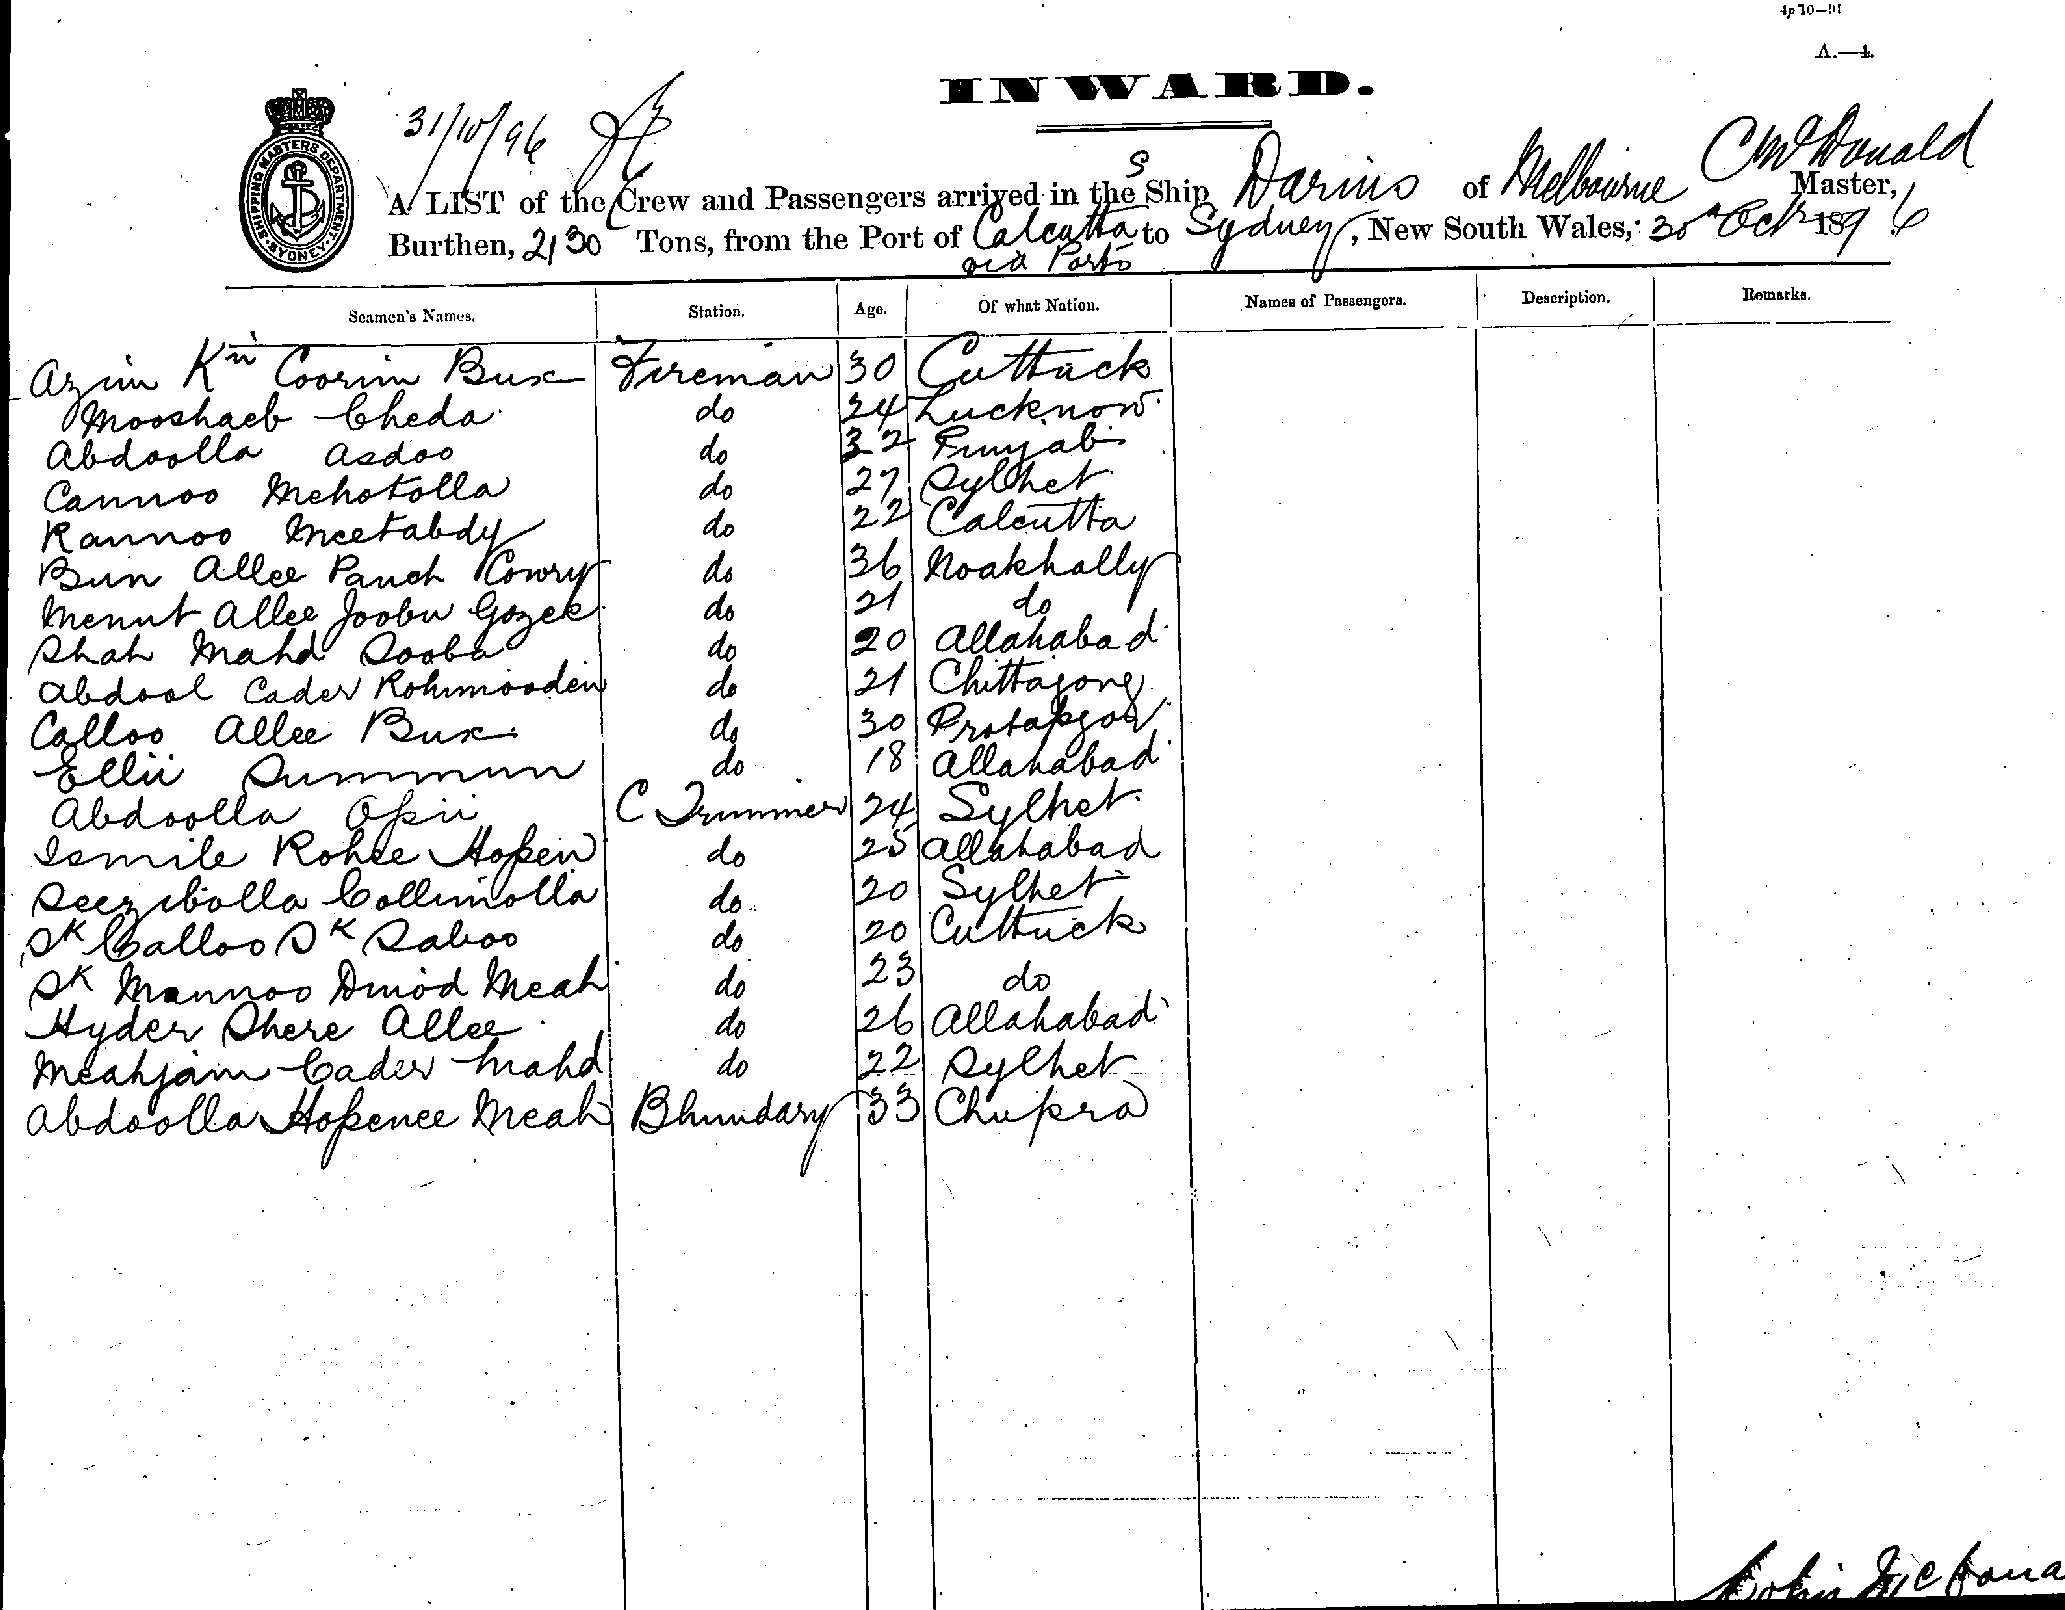 4p 10—91
A.—4.
INWARD.
31/10/96
SHIPPING MASTERS DEPARTMENT. SYDNEY.
A LIST of the Crew and Passengers arrived in the S Ship Darius of Melbourne C McDonald Master,
Burthen, 2130 Tons, from the Port of Calcutta to Sydney, New South Wales, 30th Oct 1896
via Ports
Seamen's Names. Station. Age. Of what Nation. Names of Passengers. Description. Remarks.
Azim Kn Coorim Bux Fireman 30 Cuttack
Mooshaeb Cheda do 24 Lucknow
Abdoolla Asdoo do 32 Punjab
Cannoo Mehotolla do 27 Sylhet
Rannoo Meetabdy do 22 Calcutta
Bun Allee Panch Cowry do 36 Noakhally
Menut Allee Joobu Gozee do 21 do
Shah Mahd Sooba do 20 Allahabad
Abdool Cader Rohimooden do 21 Chittagong
Calloo Allee Bux do 30 Protapgour
Ellii Summun do 18 Allahabad
Abdoolla Opii C Trimmer 24 Sylhet
Ismile Rohee Hosen do 25 Allahabad
Seezibolla Collimolla do 20 Sylhet
Sk Calloo Sk Saboo do 20 Cuttuck
Sk Mannoo Dmod Meah do 23 do
Hyder Shere Allee do 26 Allahabad
Meahjam Cader Mahd do 22 Sylhet
Abdoolla Hosenee Meah Bhundary 33 Chupra
Colin McDona